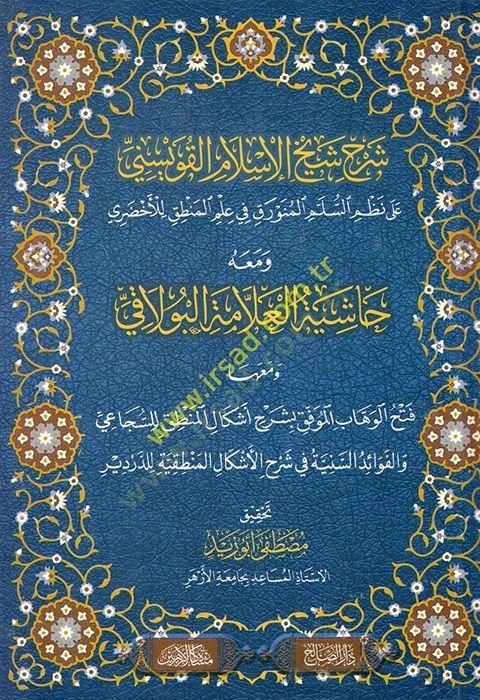 شرح شيخ الإسلام القويسني
على نظم السلم المنورق في علم المنطق للأخضري
ومعه
حاشية العلامة البولاقي
ومعها
فتح الوهاب الموفق بشرح أشكال المنطق للسجاعي
والفوائد السنية في شرح الأشكال المنطقية للدردير
تحقيق
مصطفى أبو زيد
الأستاذ المساعد بجامعة الأزهر
دار الصالح
www.irsad.com.tr